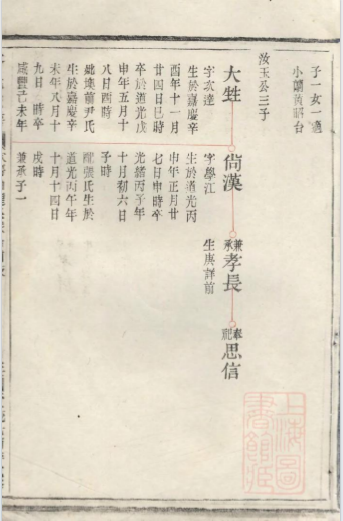 子一女一適
小謝黃昭台
汝玉公三子
大甡
字次達
生於嘉慶辛
酉年十一月
廿四日巳時
卒於道光戊
申年五月十
八月酉時
配樂前尹氏
生於嘉慶辛
未年八月十
九日 時卒
咸豐己未年
尙漢
字學江
生於道光丙
申年正月廿
七日申時卒
光緒丙子年
十月初六日
子時
配張氏生於
道光丙午年
十月十四日
戌時
兼承子一
兼承孝長
生庚詳前
奉祀思信
上海圖書館藏